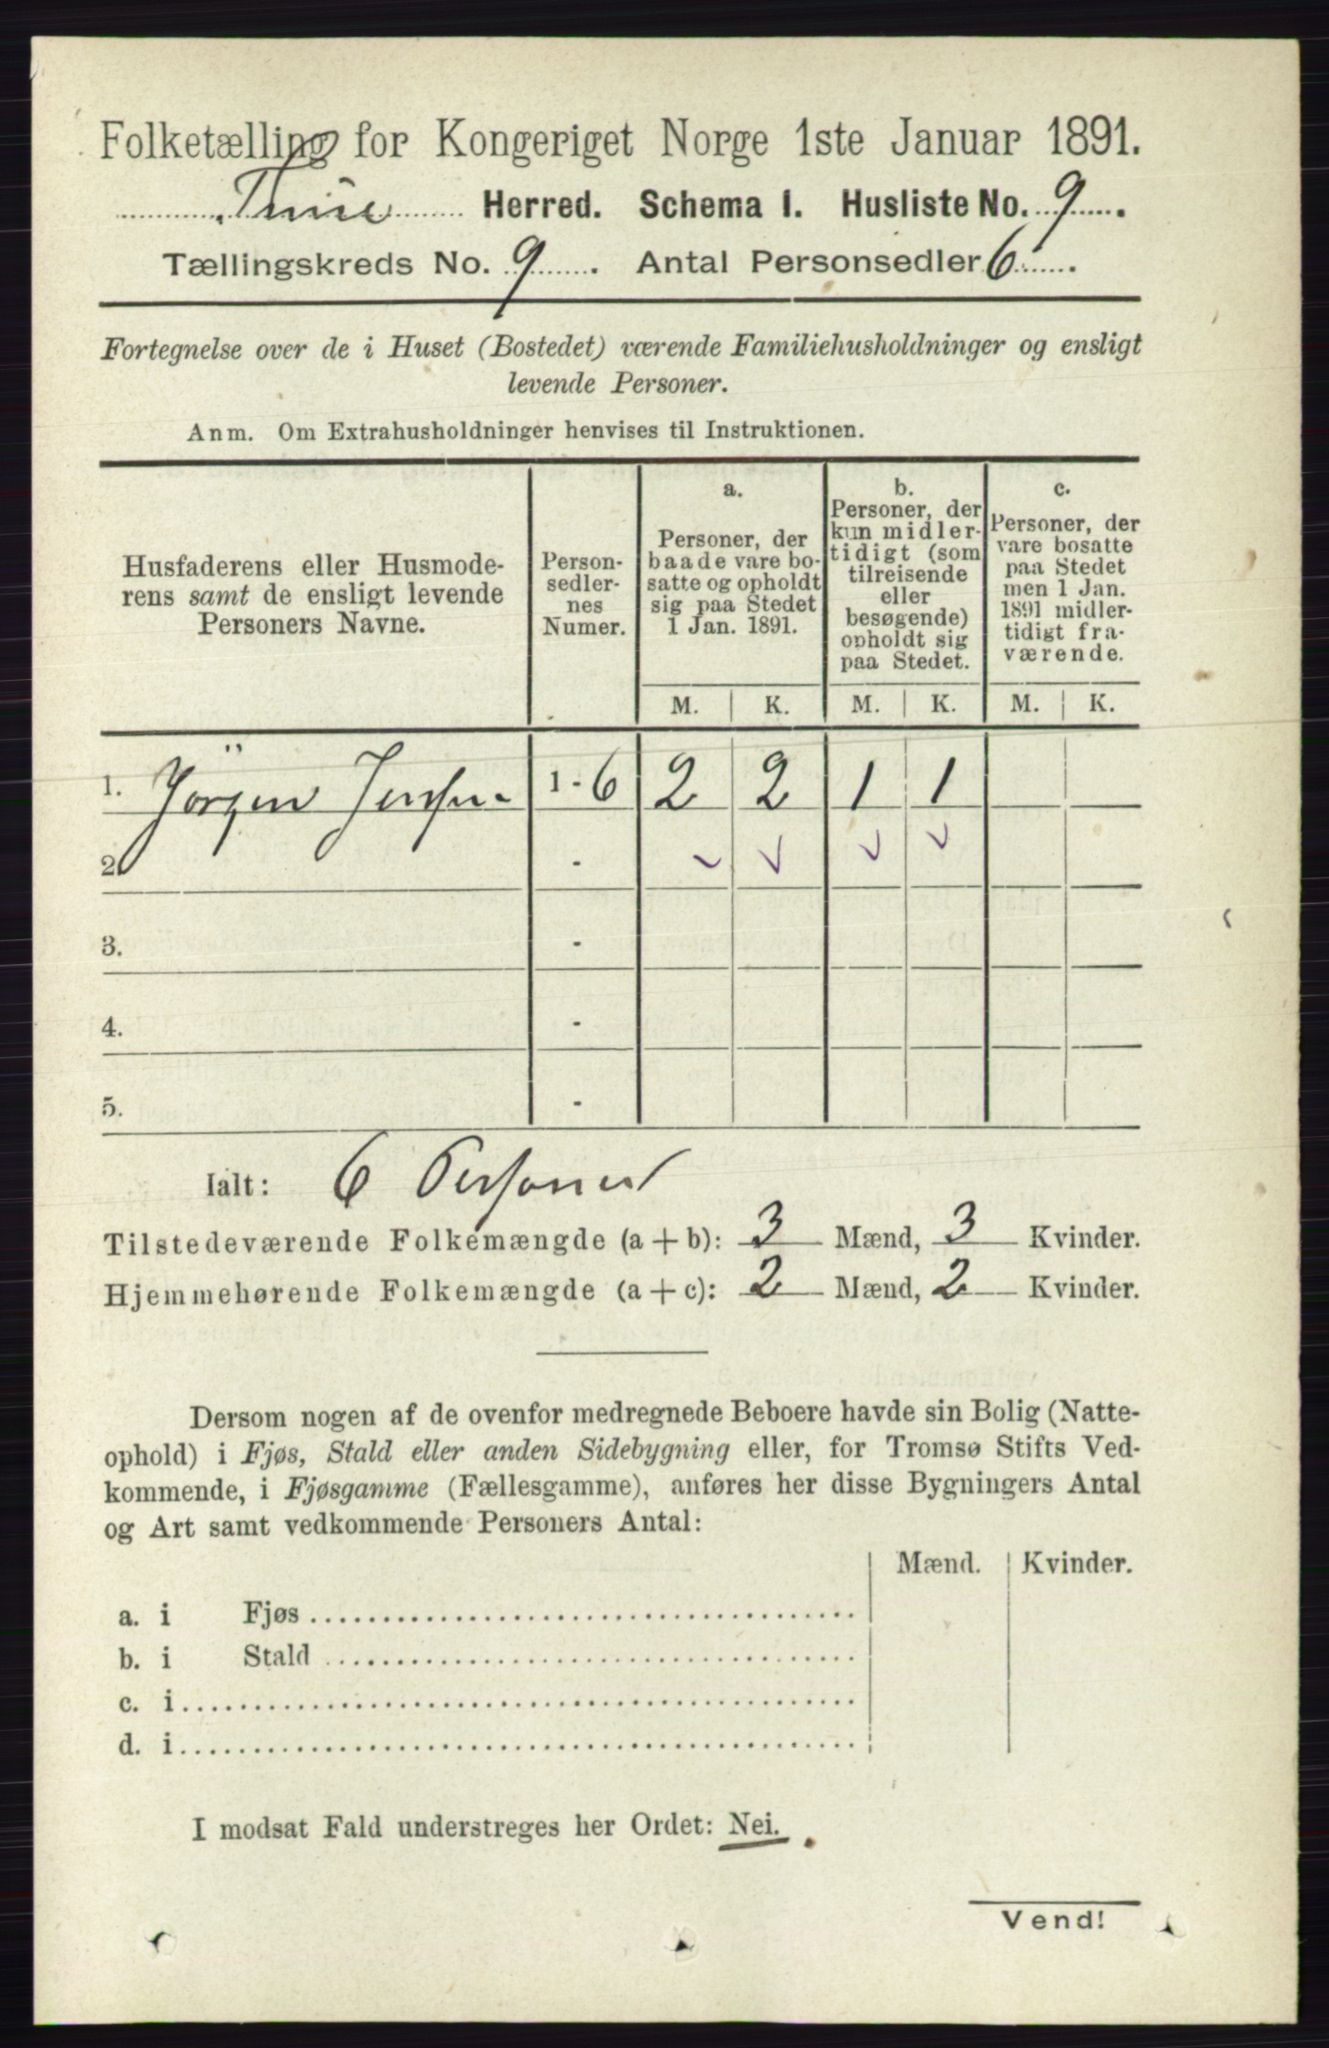 Folketælling for Kongeriget Norge 1ste Januar 1891.
Herred. Schema I. Husliste No. 9.
Tællingskreds No. 9. Antal Personsedler 6.
Fortegnelse over de i Huset (Bostedet) værende Familiehusholdninger og ensligt
levende Personer.
Anm. Om Extrahusholdninger henvises til Instruktionen.
Husfaderens eller Husmode-
rens samt de ensligt levende
Personers Navne.
Person-
sedler-
nes
Numer.
a.
Personer, der
baade vare bo-
satte og opholdt
sig paa Stedet
1 Jan. 1891.
b.
Personer, der
kun midler-
tidigt (som
tilreisende
eller
besøgende)
opholdt sig
paa Stedet.
c.
Personer, der
vare bosatte
paa Stedet
men 1 Jan.
1891 midler-
tidigt fra-
værende.
M. K. M. K. M. K.
1. Jörgen Jensen 1 - 6 2 2 1 1
2. -
3. -
4. -
5. -
Ialt: 6 Personer
Tilstedeværende Folkemængde (a + b): 3 Mænd, 3 Kvinder.
Hjemmehørende Folkemængde (a + c): 2 Mænd, 2 Kvinder.
Dersom nogen af de ovenfor medregnede Beboere havde sin Bolig (Natte-
ophold) i Fjøs, Stald eller anden Sidebygning eller, for Tromsø Stifts Ved-
kommende, i Fjøsgamme (Fællesgamme), anføres her disse Bygningers Antal
og Art samt vedkommende Personers Antal:
Mænd. Kvinder.
a. i Fjøs
b. i Stald
c. i
d. i
I modsat Fald understreges her Ordet: Nei.
Vend!